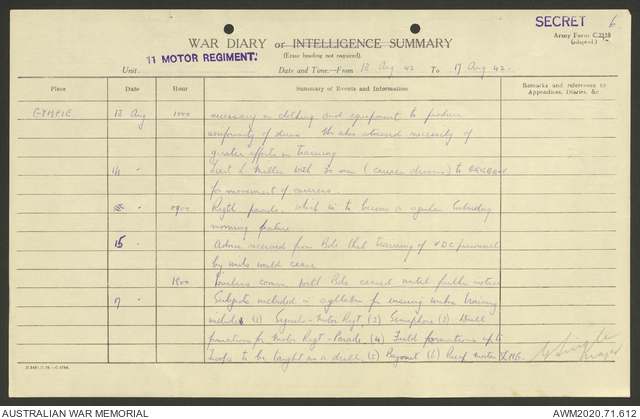 SECRET 6.
Army Form C.2118
(adapted.)
WAR DIARY or INTELLIGENCE SUMMARY
(Erase heading not required).
Unit 11 MOTOR REGIMENT.
Date and Time—From 13 Aug 42 To 17 Aug 42.
Place Date Hour Summary of Events and Information Remarks and references to Appendices, Diaries, &c
GYMPIE 13 Aug 1000 necessary in clothing and equipment to produce
uniformity of dress. He also stressed necessity of
greater efforts in training
14 - Lieut L Miller with 20 men (carrier drivers) to BRISBANE
for movement of carriers.
0900 Regtl parade, which is to become a regular Saturday
morning feature
15 - Advice received from Bde that training of VDC personnel
by units would cease
1800 Wireless comm with Bde ceased until further notice
17 - Subjects included in syllabus for ensuing weeks training
include (1) Signals - Motor Regt (2) Semaphore (3) Drill
formations for Motor Regt - Parade, (4) Field formations up to
Troops to be taught as a drill, (5) Bayonet (6) LMG.
Major
AUSTRALIAN WAR MEMORIAL
AWM2020.71.612